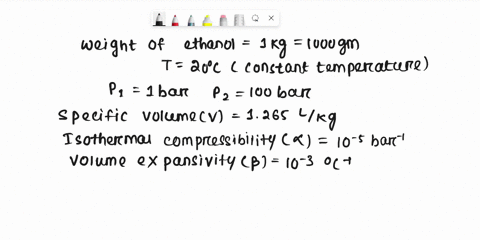 weight of ethanol = 1kg = 1000gm
T = 20°C (constant temperature)
P1 = 1 bar P2 = 100 bar
Specific volume (v) = 1.265 L/kg
Isothermal compressibility (α) = 10^-5 bar^-1
volume expansivity (β) = 10^-3 °C^-1